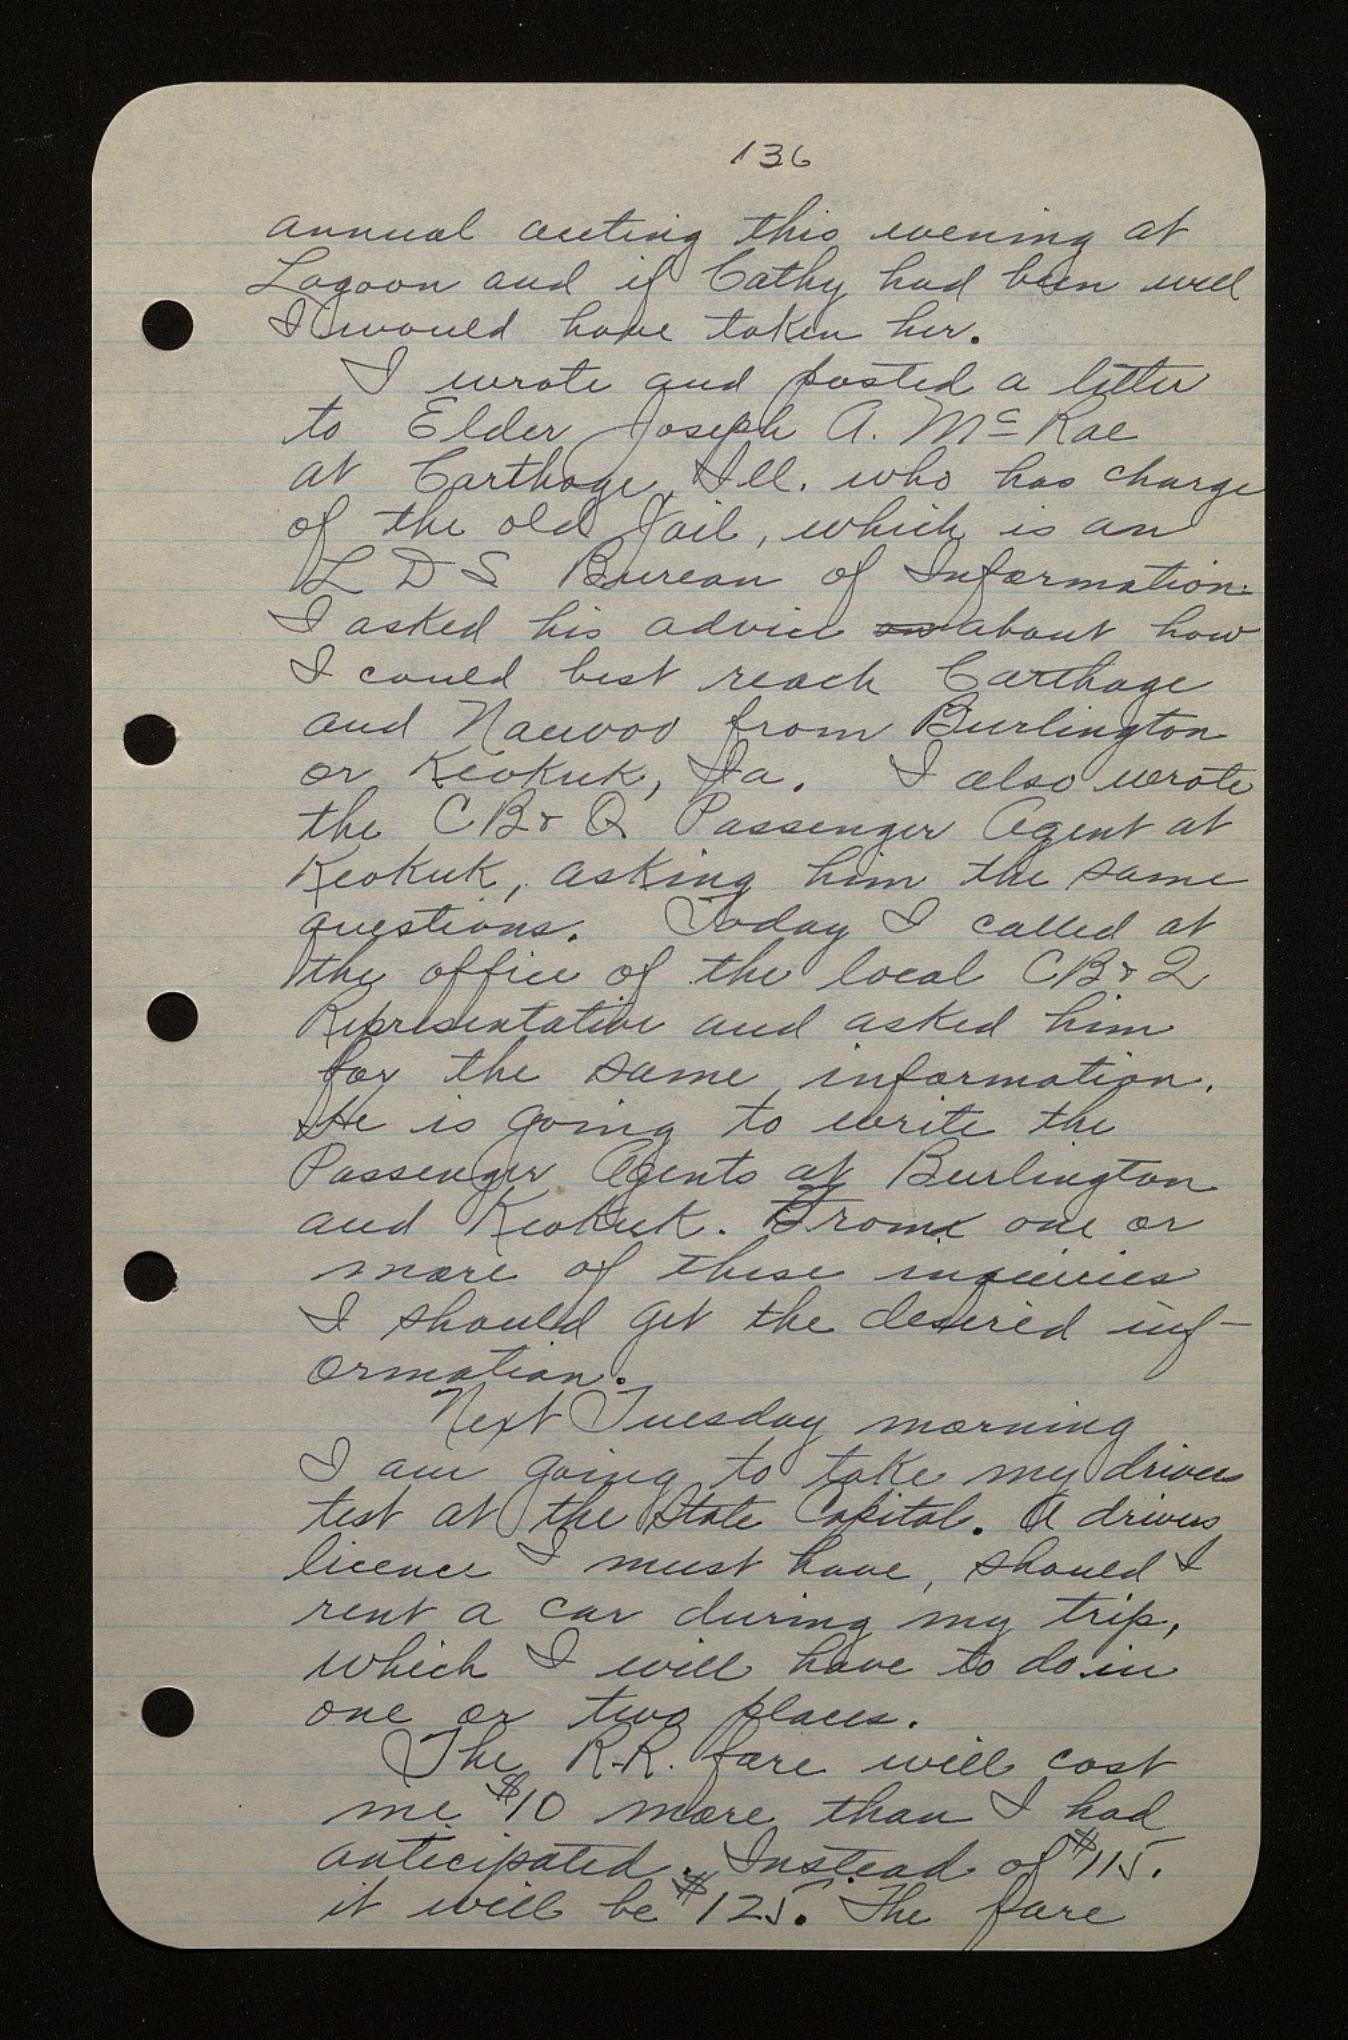 136
annual outing this evening at
Lagoon and if Cathy had been well
I would have taken her.
I wrote and posted a letter
to Elder Joseph A. McRae
at Carthage, Ill. who has charge
of the old Jail, which is an
L D S Bureau of Information.
I asked his advice on about how
I could best reach Carthage
and Nauvoo from Burlington
or Keokuk, Ia. I also wrote
the CB & Q Passenger Agent at
Keokuk, asking him the same
questions. Today I called at
the office of the local CB & Q
Representative and asked him
for the same information.
He is going to write the
Passenger Agents at Burlington
and Keokuk. From one or
more of these inquiries
I should get the desired inf-
ormation.
Next Tuesday morning
I am going to take my drivers
test at the State Capital. A drivers
licence I must have, should I
rent a car during my trip,
which I will have to do in
one or two places.
The R.R. fare will cost
me $10 more than I had
anticipated. Instead of $115.
it will be $125. The fare